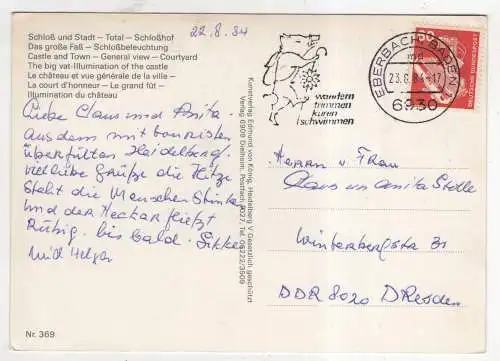 22.8.84
Schloß und Stadt – Total – Schloßhof
Das große Faß – Schloßbeleuchtung
Castle and Town – General view – Courtyard
The big vat-Illumination of the castle
Le château et vue générale de la ville –
La court d'honneur – Le grand fût –
Illumination du château
Liebe Claus und Anita.
Aus dem mit touristen
überfüllten Heidelberg.
viel liebe Grüße die Hitze
steht die Menschen Stinken
und der Neckar fließt
Ruhig. bis bald. Silke
und Helga
Nr. 369
Kunstverlag Edmund von König, Heidelberg V Gesetzlich geschützt
Verlag 6909 Dielheim, Postfach 1027, Tel. 06222/
wandern
trimmen
kuren
schwimmen
EBERBACH, BADEN
23.8.84-17
6930
60
DEUTSCHE BUNDESPOST
Herrn u. Frau
Claus u. Anita
Winterbergstr. 31
DDR 8020 Dresden